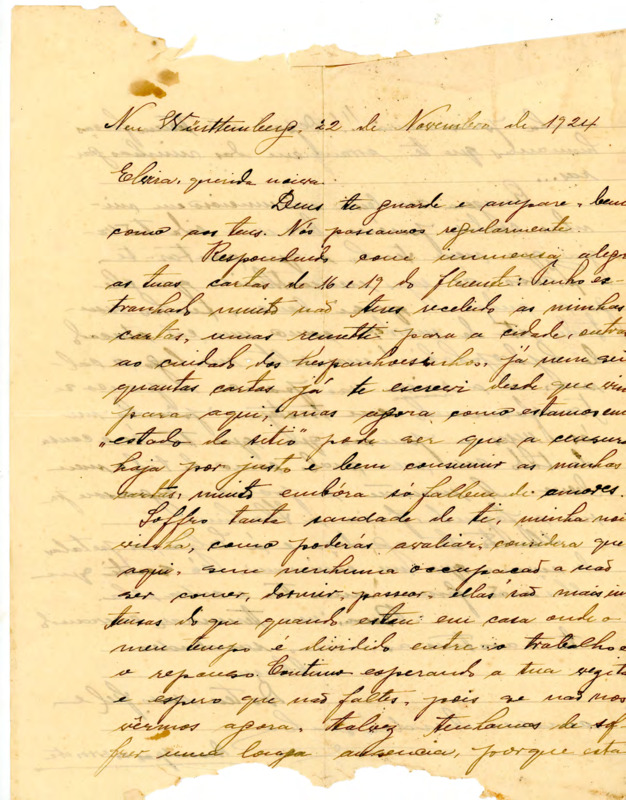 Neu Württemberg, 22 de Novembro de 1924
Elvira, querida noiva.
Deus te guarde e ampare, bem
como aos teus. Nós passamos regularmente
Respondendo com immensa alegr
as tuas cartas de 16 e 19 do fluente: Tenho es-
tranhado muito não teres recebido as minhas
cartas, umas remetti para a cidade, outras
ao cuidado dos Hespanhoesinhos, já nem sei
quantas cartas já te escrevi desde que vim
para aqui, mas agora como estamos em
"estado de sitio" pode ser que a censura
haja por justo e bem consumir as minhas
cartas, muito embóra só fallem de amores.
Soffro tanta saudade de ti, minha noi
vinha, como poderás avaliar, considera que
aqui, sem nenhuma occupação a não
ser comer, dormir, passear, ellas são mais in
tensas do que quando estou em casa onde o
meu tempo é dividido entre o trabalho e
o repouso. Continuo esperando a tua vezita
e espero que não faltes, pois se não nos
vêrmos agora, talvez tenhamos de sof
frer uma longa ausencia, porque esta